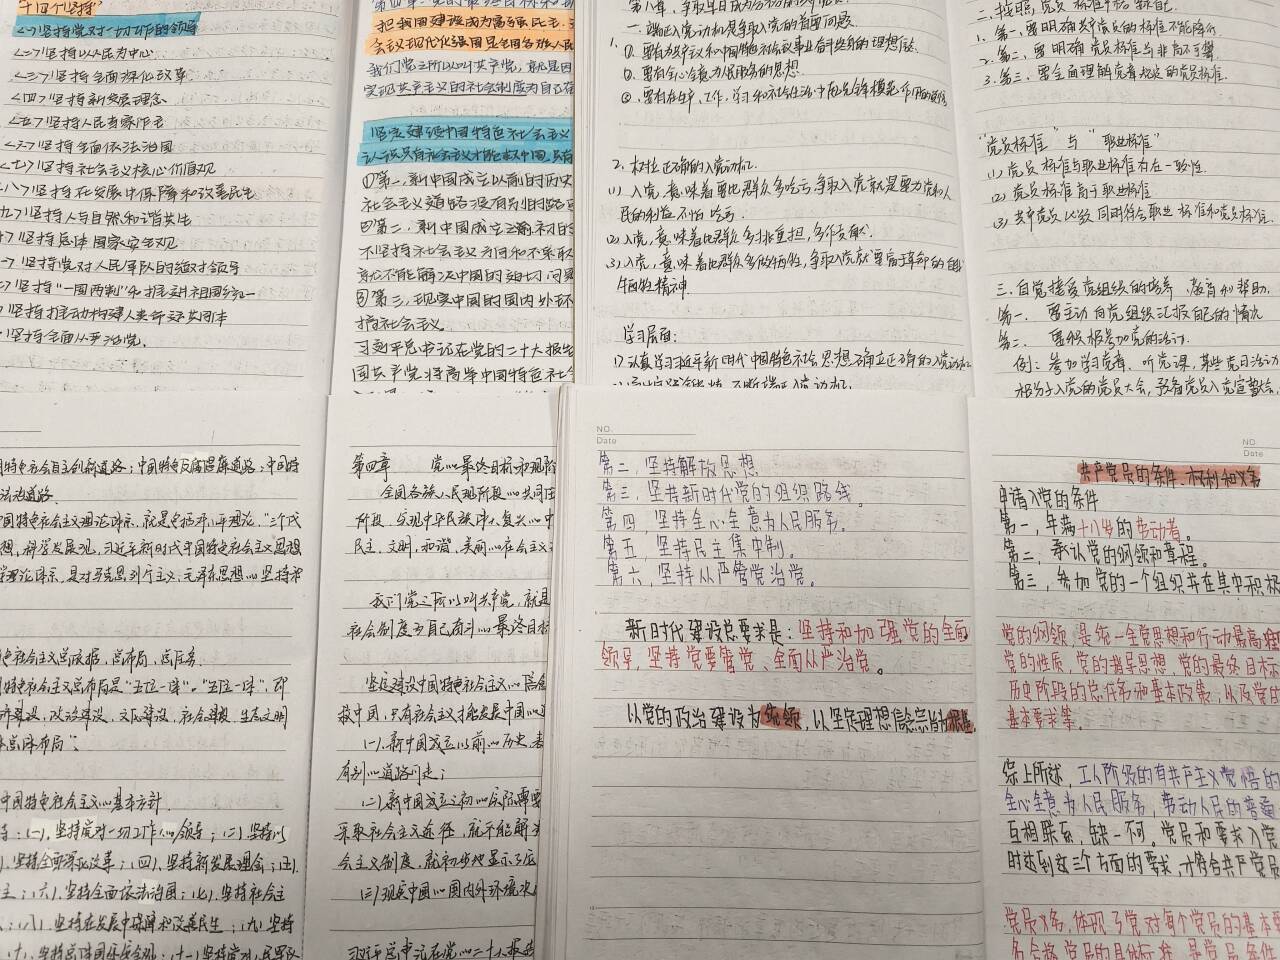 "十四个坚持"
<一>坚持党对一切工作的领导
<二>坚持以人民为中心
<三>坚持全面深化改革
<四>坚持新发展理念
<五>坚持人民当家作主
<六>坚持全面依法治国
<七>坚持社会主义核心价值观
八>坚持在发展中保障和改善民生
九>坚持人与自然和谐共生
>坚持总体国家安全观
>坚持党对人民军队的绝对领导
>坚持"一国两制"和推进祖国统一
>坚持推动构建人类命运共同体
坚持全面从严治党。
把我国建设成为富强民主
会主义现代化强国是全国各族人民
我们党之所以叫共产党，就是因
实现共产主义的社会制度为自己
坚定建设中国特色社会主义
认识只有社会主义才能救中国，只有
①第一，新中国成立以前的历史
社会主义道路没有别的路可
②第二，新中国成立之初初的
不坚持社会主义方向和不采取
就不能解决中国的迫切问题
③第三，现实中国的国内外环
搞社会主义。
习近平总书记在党的二十大报告
国共产党将高举中国特色社会
一、端正入党动机是争取入党的首要问题
1.
①.要有为共产主义和中国特色社会主义事业奋斗终身的理想信念.
②.要有全心全意为人民服务的思想.
③.要有在生产、工作、学习和社会生活中起先锋模范作用的
2.树立正确的入党动机.
(1)入党，意味着要比群众多吃亏，争取入党就是要为党和人
民的利益不怕吃亏.
(2)入党，意味着比群众多挑重担，多作贡献.
(3)入党，意味着比群众多做牺牲，争取入党就要富于革命的自我
牺牲精神.
学习层面：
1)认真学习习近平新时代中国特色社会思想，确立正确的入党动机
二.按照党员标准严格要求自己.
1.第一，要明确共产党员的标准不能降低.
2.第二，要明确党员标准与非高不可攀.
3.第三，要全面理解党章规定的党员标准.
"党员标准"与"职业标准"
(1)党员标准与职业标准存在一致性
(2)党员标准高于职业标准
(3)共产党员必须同时符合职业标准和党员标准.
三.自觉接受党组织的培养、教育和帮助.
第一、要主动向党组织汇报自己的情况
第二、要积极参加党的活动.
例：参加学习党章、听党课，某些党日活动
积分子入党的党员大会，预备党员入党宣誓会，
特色社会自主创新道路；中国特色反腐倡廉道路；中国特
法治道路.
国特色社会主义理论体系，就是包括邓小平理论、"三个代
想、科学发展观、习近平新时代中国特色社会主义思想
学理论体系，是对马克思列宁主义、毛泽东思想的坚持和
色社会主义总依据，总布局，总任务.
特色社会主义总布局是"五位一体"。"五位一体"，即
济建设，政治建设，文化建设，社会建设，生态文明
总体布局".
中国特色社会主义的基本方针.
持：(一)、坚持党对一切工作的领导；(二)坚持以
坚持全面深化改革；(四)、坚持新发展理念；(五).
主；(六)、坚持全面依法治国；(七)、坚持社会主
；(八)、坚持在发展中保障和改善民生；(九)坚持
(十)、坚持总体国家安全观；(十一)坚持党对人民军队
第四章 党的最终目标和现阶
全国各族人民现阶段的共同
阶段，实现中华民族伟大复兴的中
民主、文明、和谐、美丽的社会主义
我们党之所以叫共产党，就是
社会制度为自己奋斗的最终目标
坚定建设中国特色社会主义的信念
救中国，只有社会主义才能发展中国的
(一).新中国成立以前的历史，表
有别的道路可走；
(二)新中国成立之初的实际需要
采取社会主义途径，就不能解决
会主义制度，就初步地显示了
(三)现实中国的国内外环境决
习近平总书记在党的二十大报告
NO.
Date
第二，坚持解放思想
第三，坚持新时代党的组织路线。
第四，坚持全心全意为人民服务。
第五，坚持民主集中制。
第六，坚持从严管党治党。
新时代建设总要求是：坚持和加强党的全面
领导，坚持党要管党、全面从严治党。
以党的政治建设为统领，以坚定理想信念宗旨为根基，
NO.
Date
共产党员的条件、权利和义务
申请入党的条件
第一，年满十八岁的劳动者。
第二，承认党的纲领和章程。
第三，参加党的一个组织并在其中积极
党的纲领，是统一全党思想和行动最高准
党的性质，党的指导思想，党的最终目标
历史阶段的总任务和基本政策，从及党的
基本要求等。
综上所述，工人阶级的有共产主义觉悟的
全心全意为人民服务，劳动人民的普通
互相联系，缺一不可。党员和要求入党
时达到这三个方面的要求，才符合共产党员
党员义务，体现了党对每个党员的基本要
务合格党员的具体标准，是党员条件